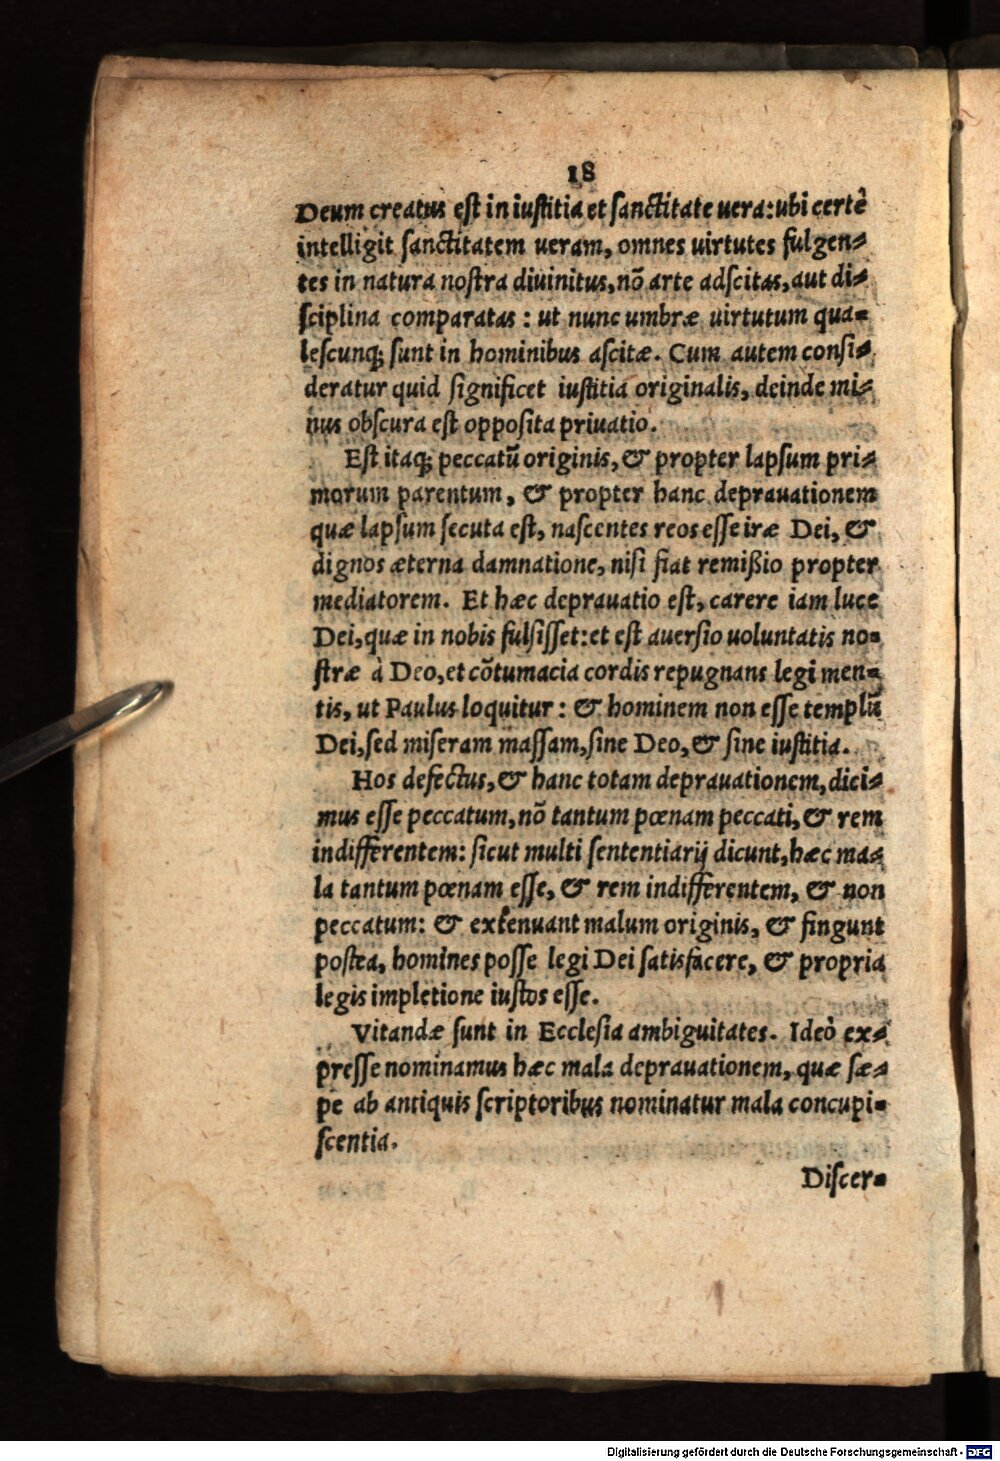 18
Deum creatus est in iustitia et sanctitate uera: ubi certè
intelligit sanctitatem ueram, omnes uirtutes fulgen-
tes in natura nostra diuinitus, nō arte adscitas, aut di-
sciplina comparatas: ut nunc umbræ uirtutum qua-
lescunq; sunt in hominibus ascitæ. Cum autem consi-
deratur quid significet iustitia originalis, deinde mi-
nus obscura est opposita priuatio.
Est itaq; peccatū originis, & propter lapsum pri-
morum parentum, & propter hanc deprauationem
quæ lapsum secuta est, nascentes reos esse iræ Dei, &
dignos æterna damnatione, nisi fiat remißio propter
mediatorem. Et hæc deprauatio est, carere iam luce
Dei, quæ in nobis fulsisset: et est auersio uoluntatis no-
stræ à Deo, et cōtumacia cordis repugnans legi men-
tis, ut Paulus loquitur: & hominem non esse templū
Dei, sed miseram massam, sine Deo, & sine iustitia.
Hos defectus, & hanc totam deprauationem, dici-
mus esse peccatum, nō tantum pœnam peccati, & rem
indifferentem: sicut multi sententiarij dicunt, hæc ma-
la tantum pœnam esse, & rem indifferentem, & non
peccatum: & extenuant malum originis, & fingunt
postea, homines posse legi Dei satisfacere, & propria
legis impletione iustos esse.
Vitandæ sunt in Ecclesia ambiguitates. Ideò ex-
presse nominamus hæc mala deprauationem, quæ sæ-
pe ab antiquis scriptoribus nominatur mala concupi-
scentia.
Discer-
Digitalisierung gefördert durch die Deutsche Forschungsgemeinschaft - DFG